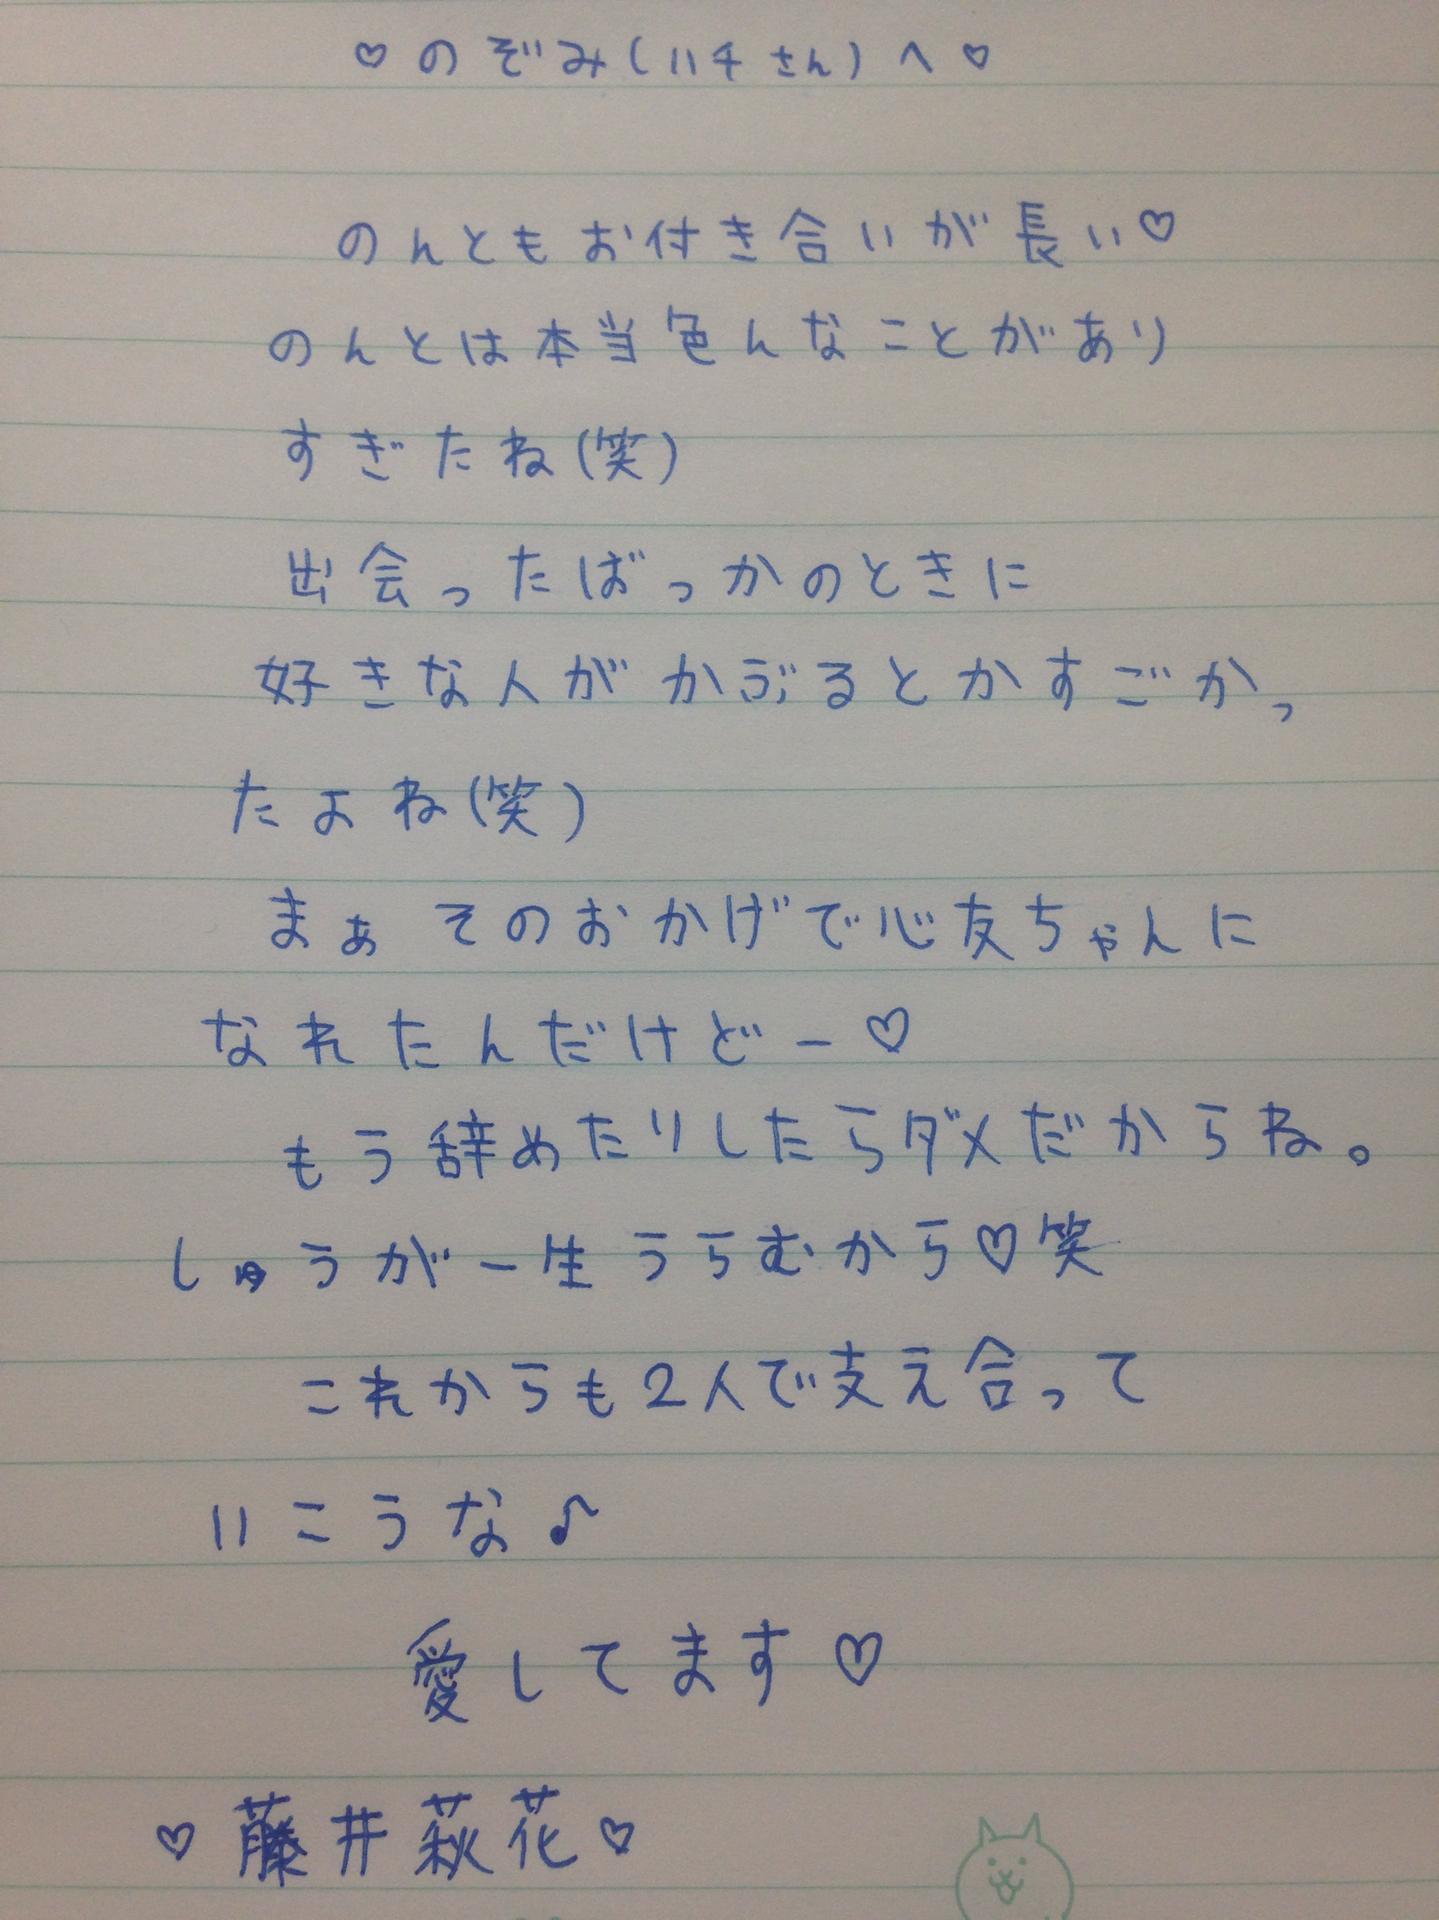 ♡のぞみ(ハチさん)へ♡
のんともお付き合いが長い♡
のんとは本当色んなことがあり
すぎたね(笑)
出会ったばっかのときに
好きな人がかぶるとかすごかっ
たよね(笑)
まぁそのおかげで心友ちゃんに
なれたんだけどー♡
もう辞めたりしたらダメだからね。
しゅうが一生うらむから♡笑
これからも2人で支え合って
いこうな♪
愛してます♡
♡藤井萩花♡